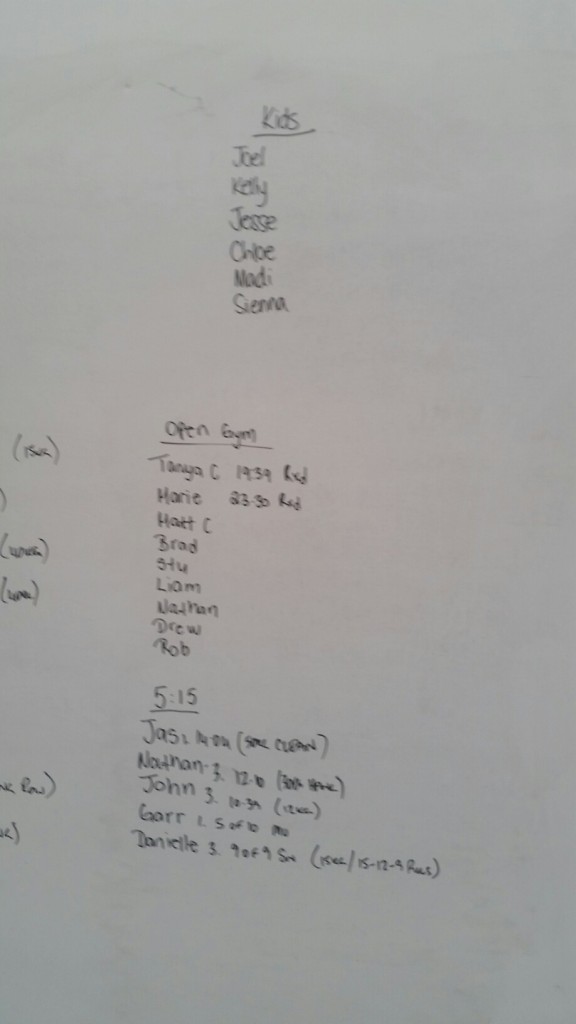 Kids
Joel
Kelly
Jesse
Chloe
Madi
Sienna
Open Gym
Tanya C 19:39 Rxd
Marie 23:30 Rxd
Matt C
Brad
Stu
Liam
Nathan
Drew
Rob
5:15
Jas 2. 14:04 (50kg CLEAN)
Nathan 3. 12:10
John 3. 10:39 (12kg)
Garr 1. 5 of 10
Danielle 3. 9 of 9 (15kg/15-12-9